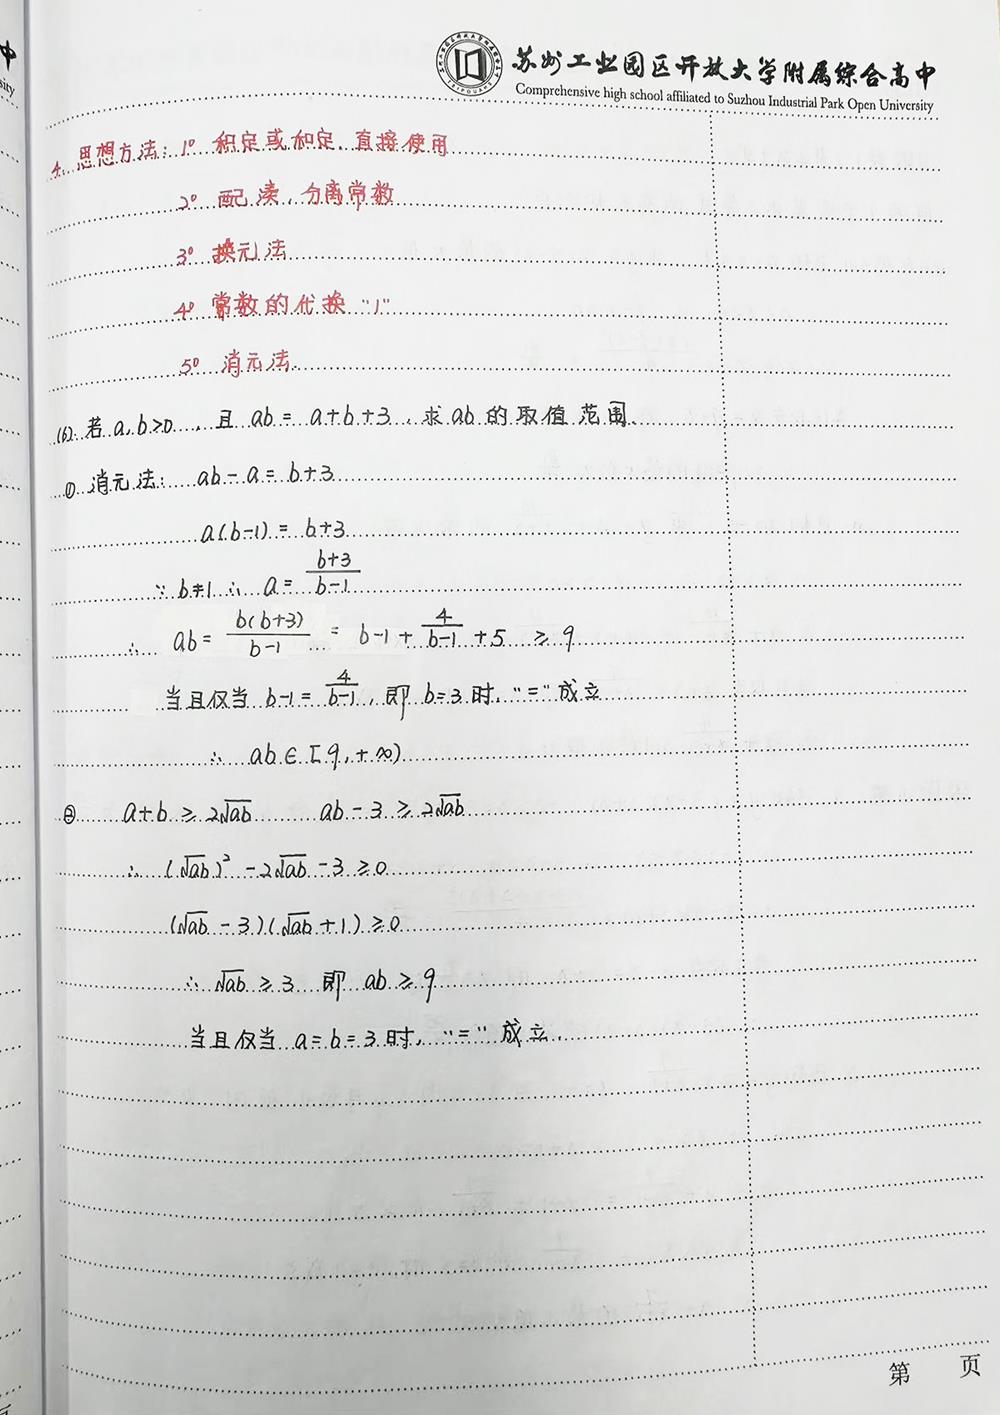 苏州工业园区开放大学附属综合高中
Comprehensive high school affiliated to Suzhou Industrial Park Open University
4. 思想方法：1° 积定或和定，直接使用
2° 配凑，分离常数
3° 换元法
4° 常数的代换 "1"
5° 消元法.
(6). 若 a, b>0，且 ab = a+b+3，求ab的取值范围.
① 消元法： ab - a = b+3
a(b-1) = b+3
∵ b≠1 ∴ a = \frac{b+3}{b-1}
∴ ab = \frac{b(b+3)}{b-1} = b-1 + \frac{4}{b-1} + 5 ≥ 9
当且仅当 b-1 = \frac{4}{b-1}，即 b=3 时，"=" 成立
∴ ab ∈ [9, +∞)
② a+b ≥ 2√ab ab-3 ≥ 2√ab
∴ (√ab)² - 2√ab - 3 ≥ 0
(√ab - 3)(√ab + 1) ≥ 0
∴ √ab ≥ 3 即 ab ≥ 9
当且仅当 a=b=3时，"=" 成立.
第 页